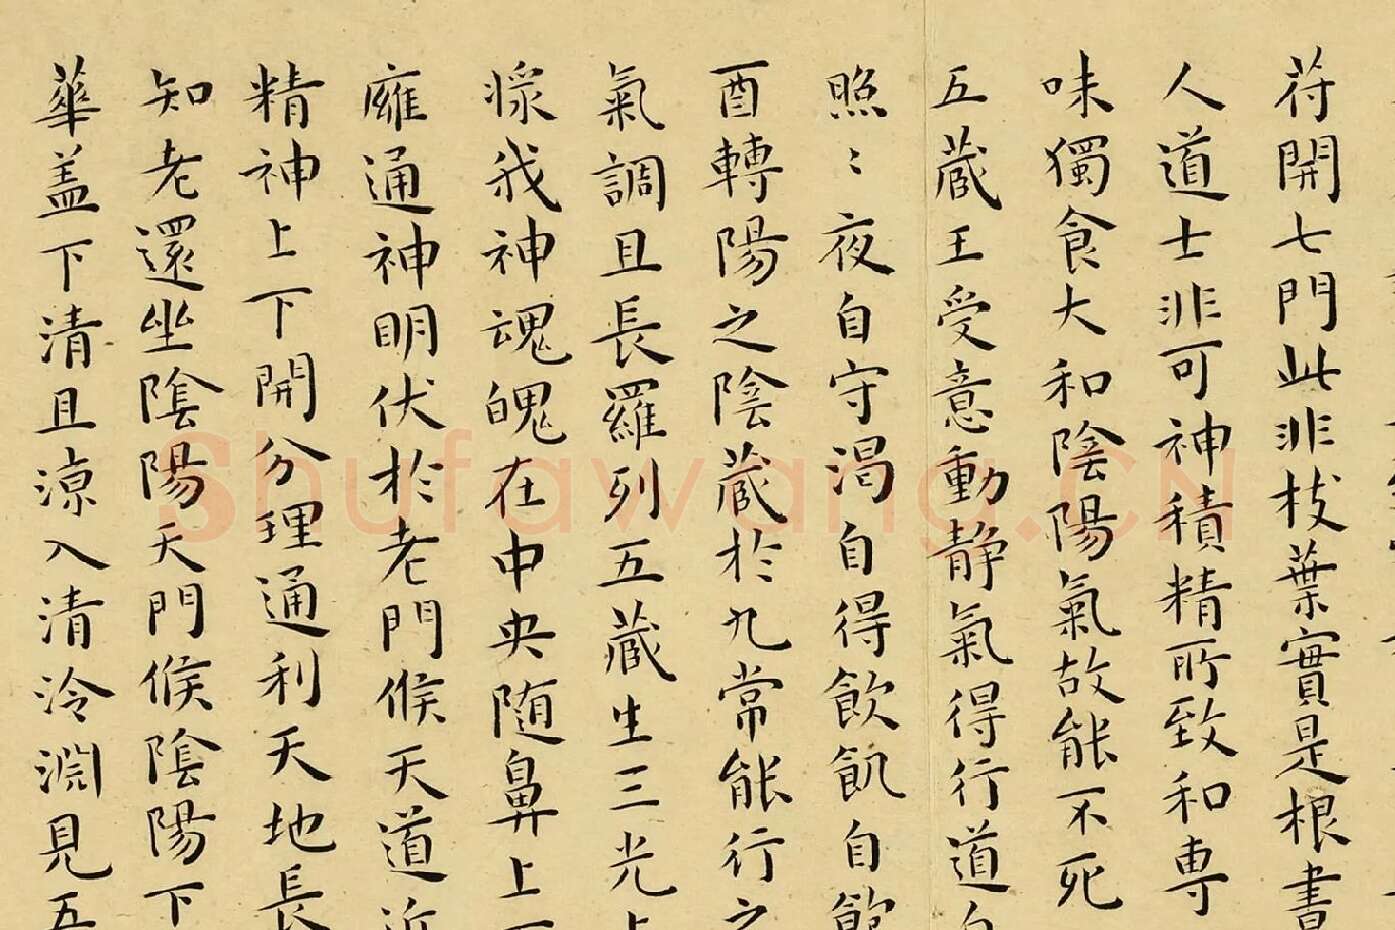 苻開七門此非枝葉實是根書
人道士非可神積精所致和専
味獨食大和陰陽氣故能不死
五蔵王受意動静氣得行道自
照〻夜自守渇自得飲飢自飽
酉轉陽之陰蔵於九常能行之
氣調且長羅列五蔵生三光上
我神魂魄在中央随鼻上下
廱通神明伏於老門候天道近
精神上下開分理通利天地長
知老還坐陰陽天門候陰陽下
華盖下清且涼入清泠淵見五
Shufawang.CN